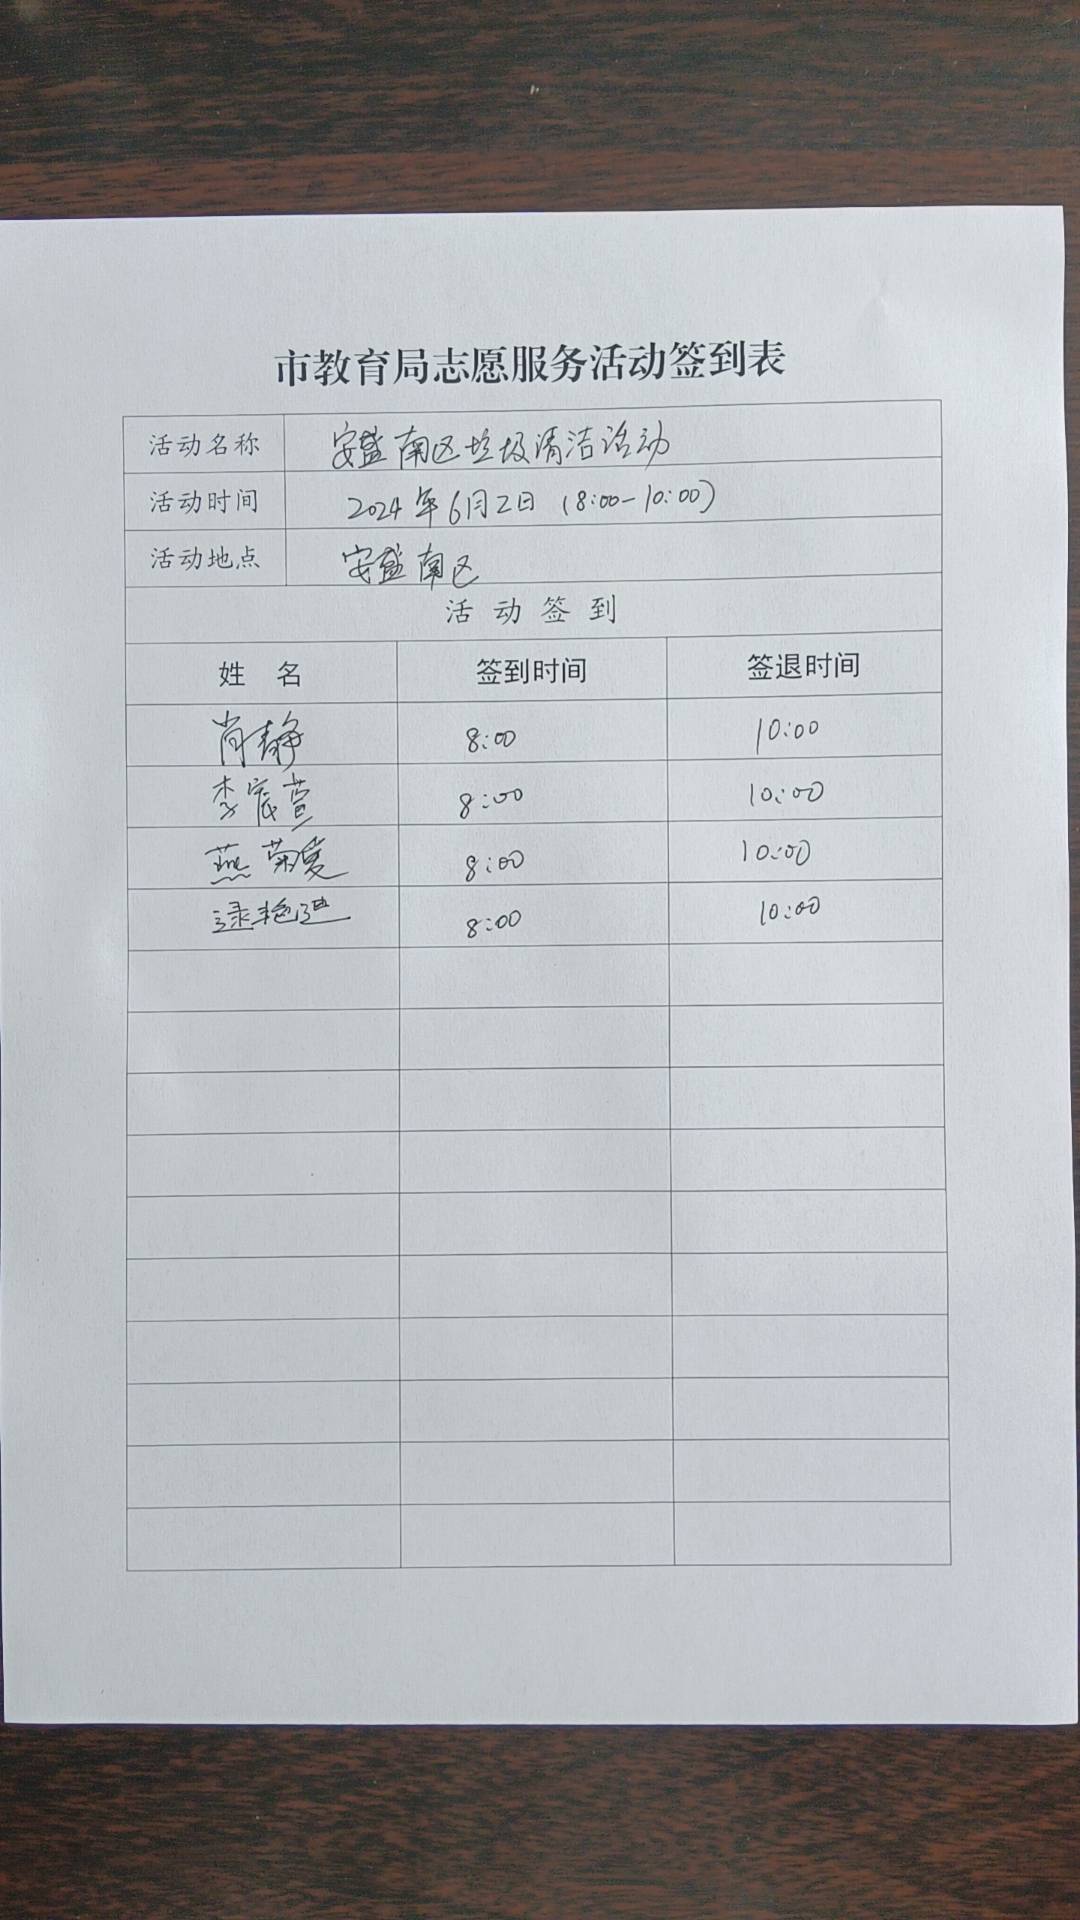 市教育局志愿服务活动签到表
活动名称 安盛南区垃圾清洁活动
活动时间 2024年6月2日（8:00-10:00）
活动地点 安盛南区
活动签到
姓 名 签到时间 签退时间
肖静 8:00 10:00
李宸萱 8:00 10:00
燕菊爱 8:00 10:00
逯艳 8:00 10:00